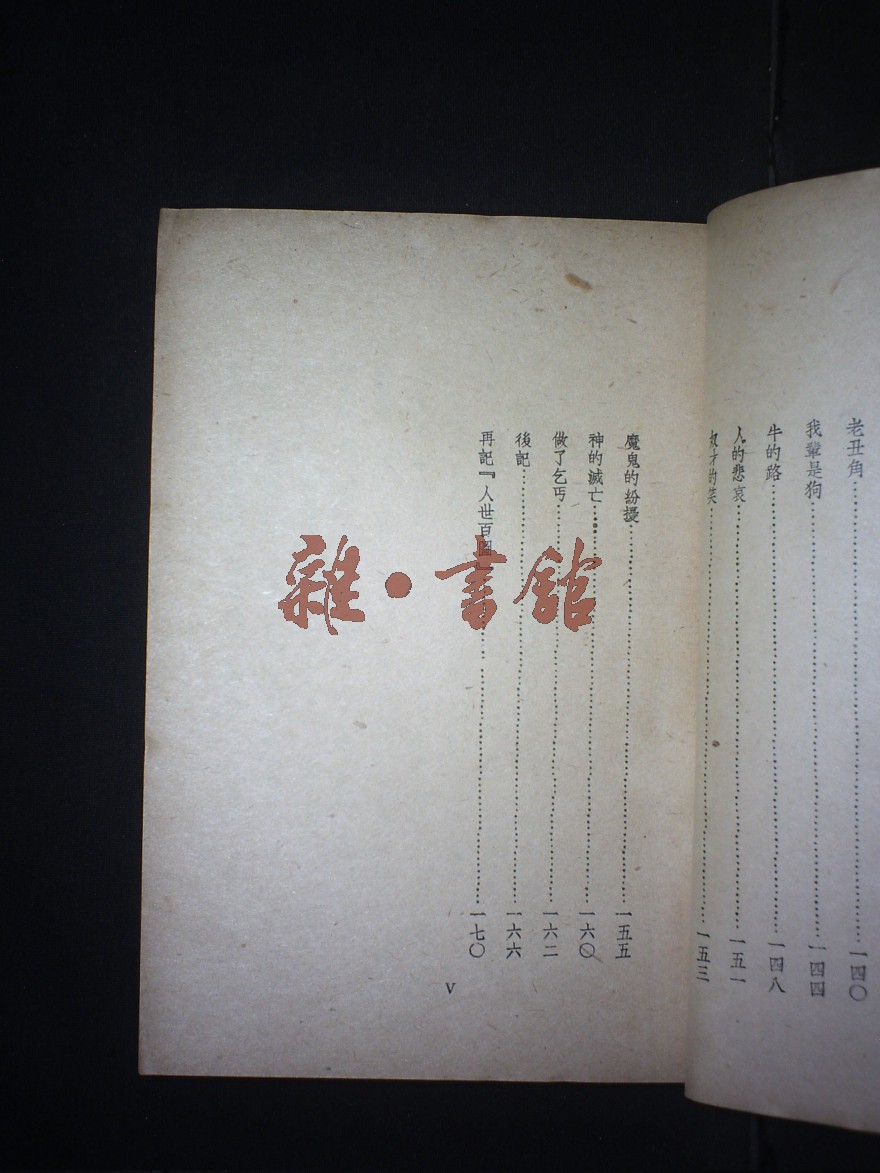 老丑角…………一四〇
我輩是狗…………一四四
牛的路…………一四八
人的悲哀…………一五一
奴才的笑…………一五三
魔鬼的紛擾…………一五五
神的滅亡…………一六〇
做了乞丐…………一六二
後記…………一六六
再記『人世百圖…………一七〇
V
雜·書館